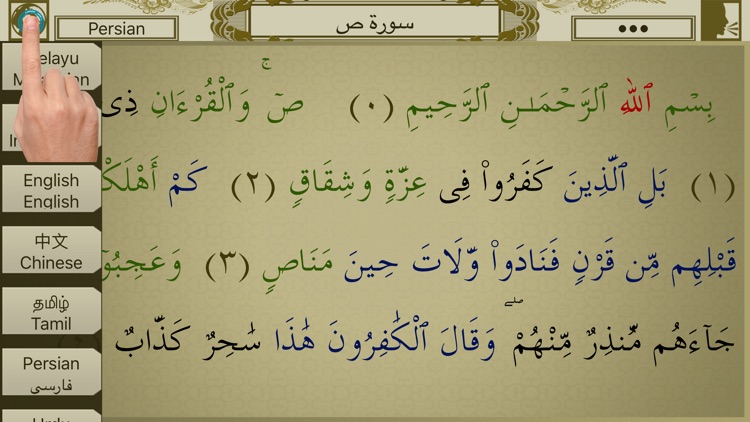 Persian
سورة ص
•••
elayu
English
English
中文
Chinese
தமிழ்
Tamil
Persian
فارسی
بِسْمِ ٱللَّهِ ٱلرَّحْمَـٰنِ ٱلرَّحِيمِ (٠) صٓ ۚ وَٱلْقُرْءَانِ ذِى
(١) بَلِ ٱلَّذِينَ كَفَرُوا۟ فِى عِزَّةٍ وَشِقَاقٍ (٢) كَمْ أَهْلَكْ
قَبْلِهِم مِّن قَرْنٍ فَنَادَوا۟ وَّلَاتَ حِينَ مَنَاصٍ (٣) وَعَجِبُوٓ
جَآءَهُم مُّنذِرٌ مِّنْهُمْ ۖ وَقَالَ ٱلْكَٰفِرُونَ هَٰذَا سَٰحِرٌ كَذَّابٌ